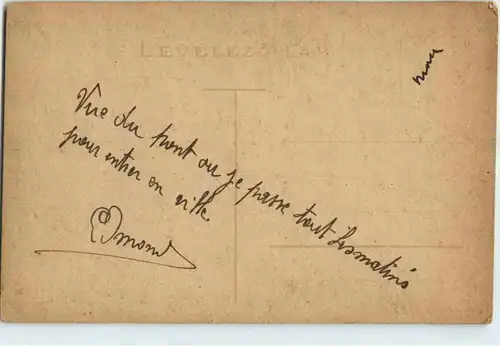 LEVELEZŐ-LAP
Vue du pont ou je passe tout lesmatins
pour entrer en ville
Edmond